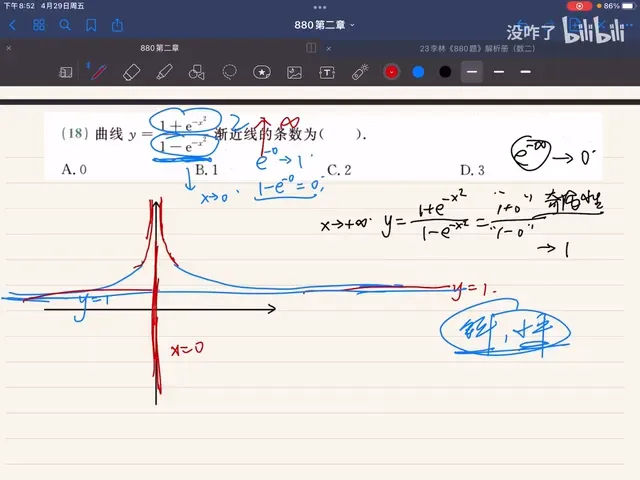 下午8:52 4月29日周五
86%
880 第二章
没咋了 bilibili
880 第二章
23李林《880题》解析册（数二）
(18) 曲线 y = (1 + e^{-x²}) / (1 - e^{-x²}) 渐近线的条数为( ).
2
∞
A. 0 B. 1 C. 2 D. 3
e^{-0} → 1
x→0
1-e^{-0}=0
e^{-∞} → 0
x→+∞ y = (1+e^{-x²}) / (1-e^{-x²}) = "1+0" / "1-0"
→ 1
y=1
y=1.
x=0